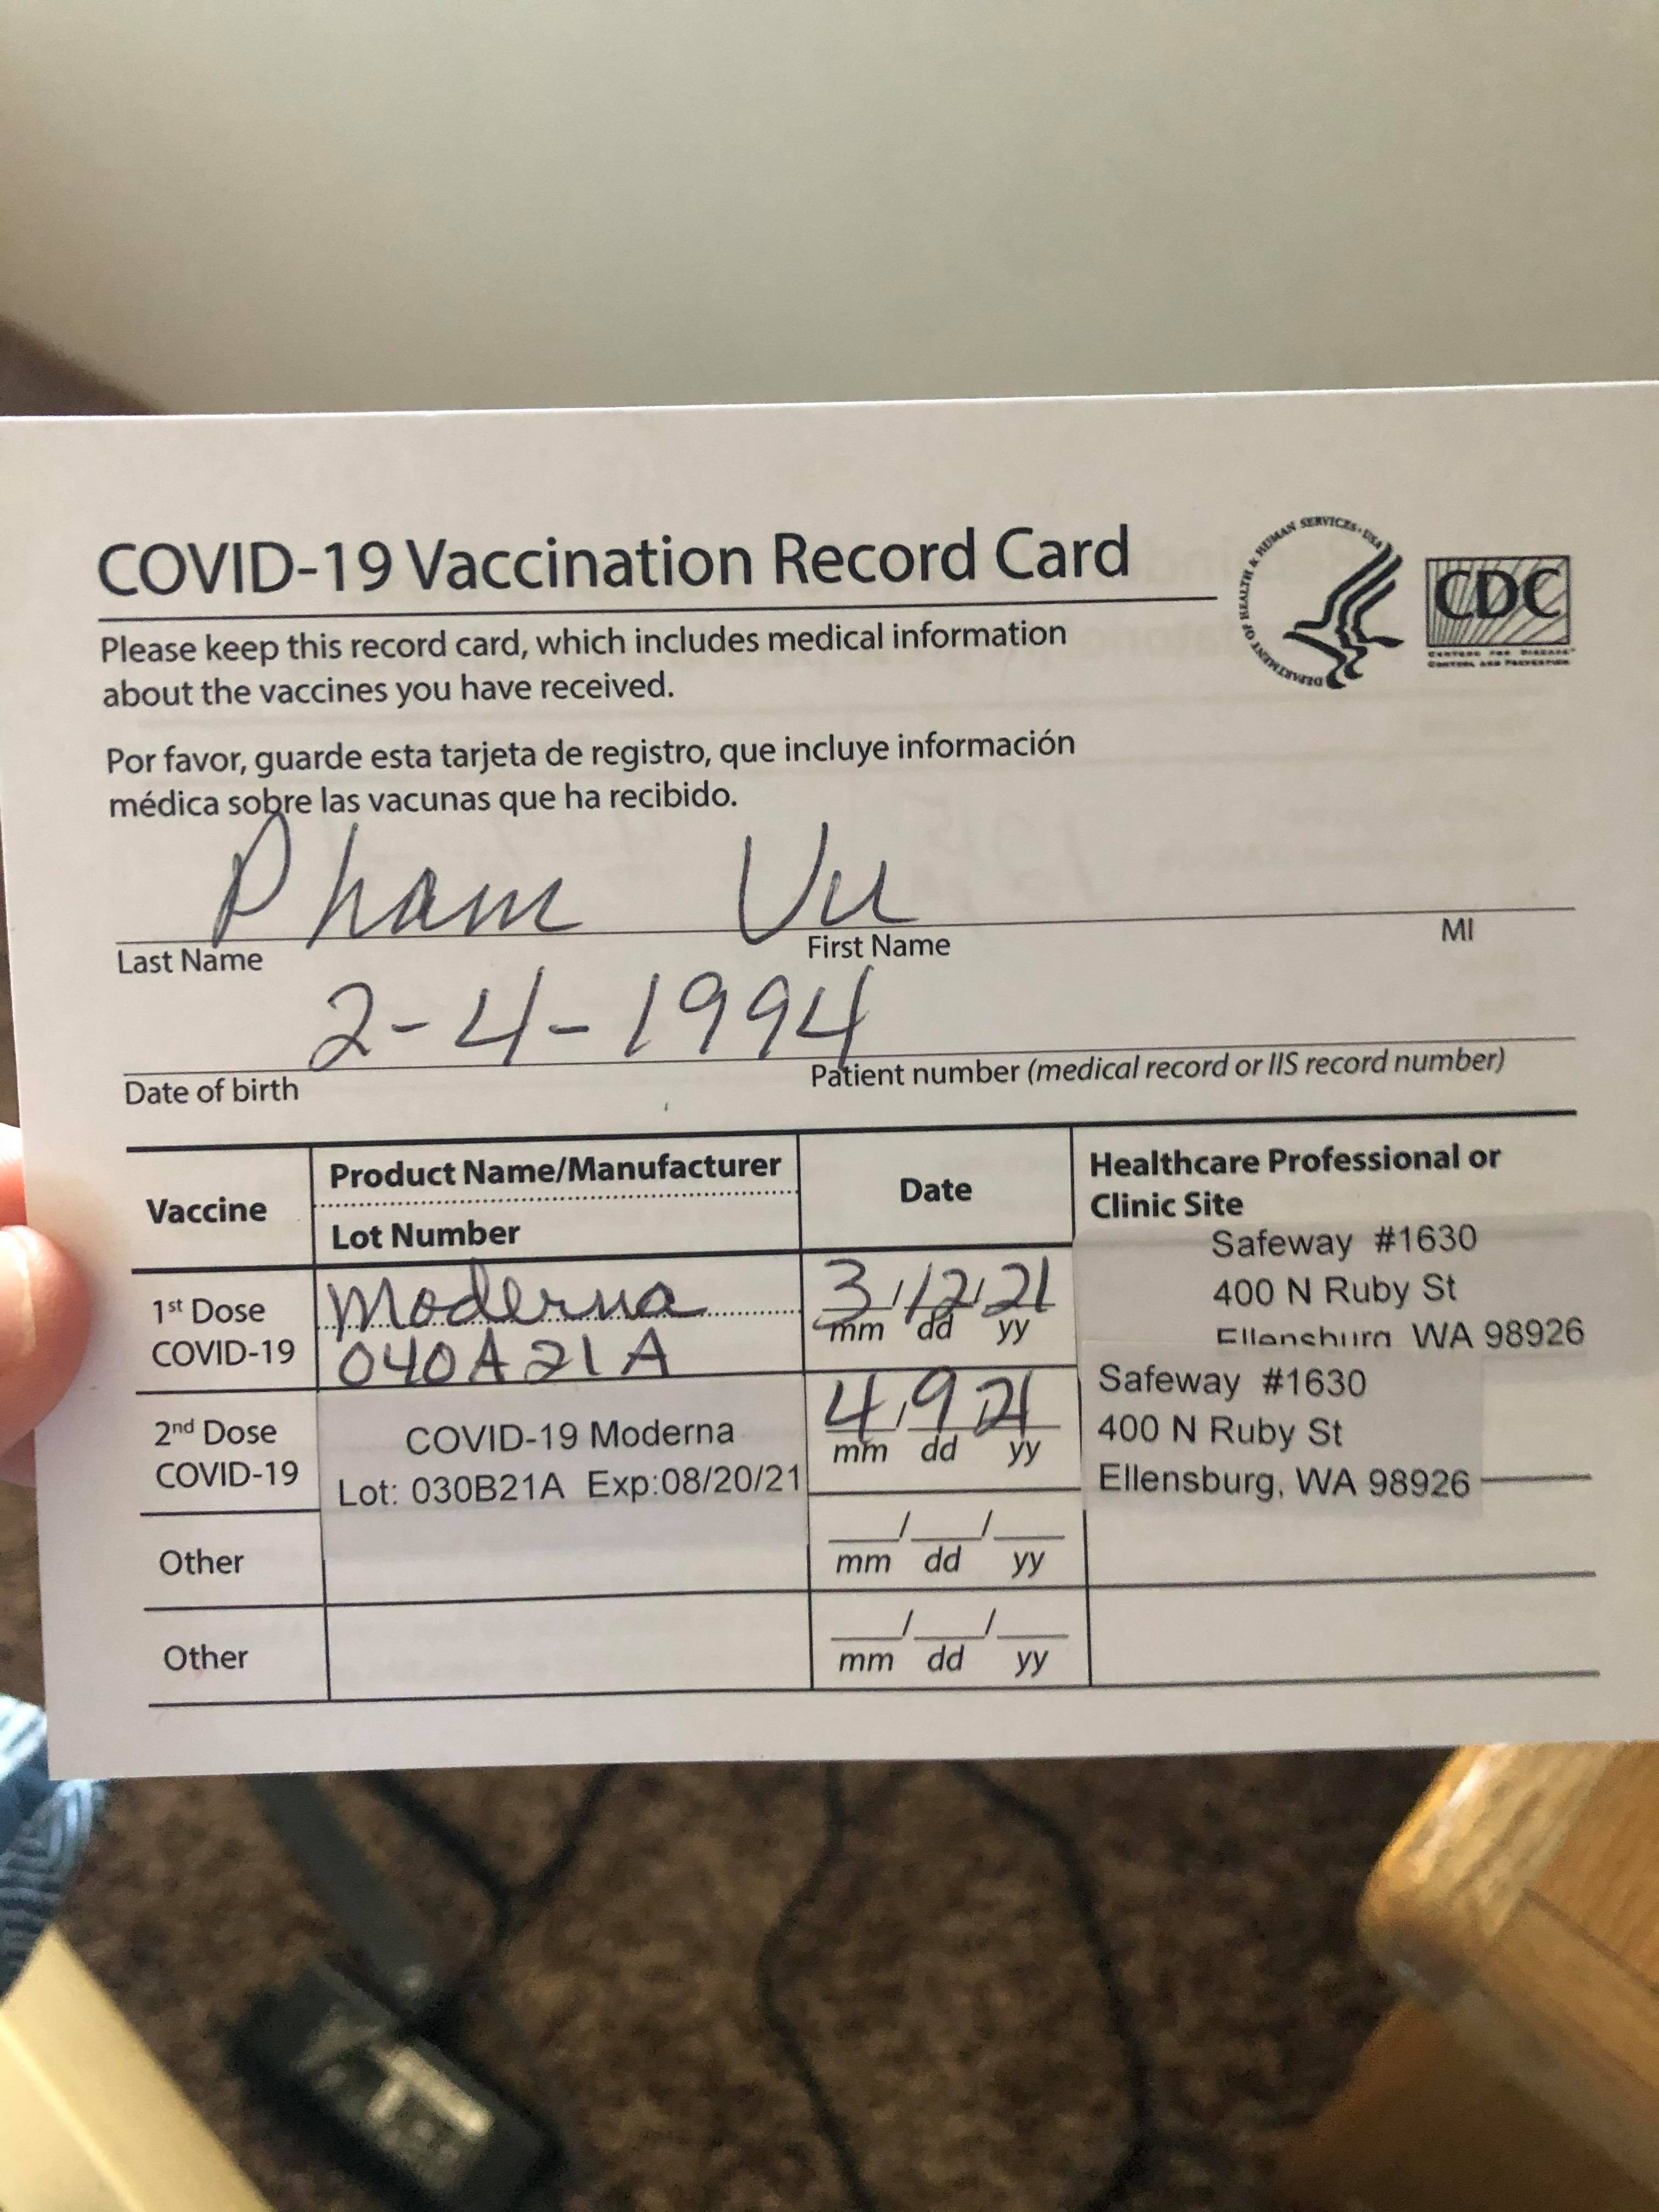 COVID-19 Vaccination Record Card
DEPARTMENT OF HEALTH & HUMAN SERVICES • USA
CDC
CENTERS FOR DISEASE
CONTROL AND PREVENTION
Please keep this record card, which includes medical information
about the vaccines you have received.
Por favor, guarde esta tarjeta de registro, que incluye información
médica sobre las vacunas que ha recibido.
Pham Vu
Last Name First Name MI
2-4-1994
Date of birth Patient number (medical record or IIS record number)
Vaccine
Product Name/Manufacturer
Lot Number
Date
Healthcare Professional or
Clinic Site
1st Dose
COVID-19
Moderna
040A21A
3/12/21
mm dd yy
Safeway #1630
400 N Ruby St
Ellensburg WA 98926
2nd Dose
COVID-19
COVID-19 Moderna
Lot: 030B21A Exp:08/20/21
4/9/21
mm dd yy
Safeway #1630
400 N Ruby St
Ellensburg, WA 98926
Other
___/___/___
mm dd yy
Other
___/___/___
mm dd yy